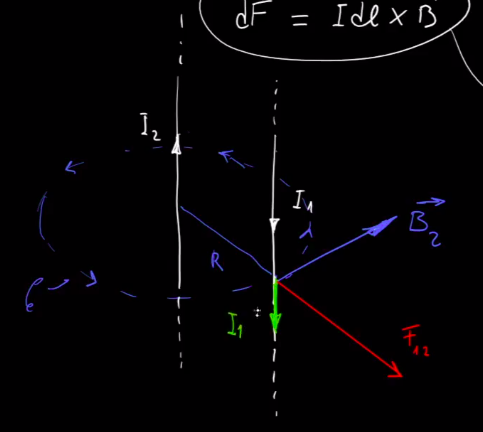 dF = Idl × B
I₂
I₁
B⃗₂
R
I₁
F₁₂